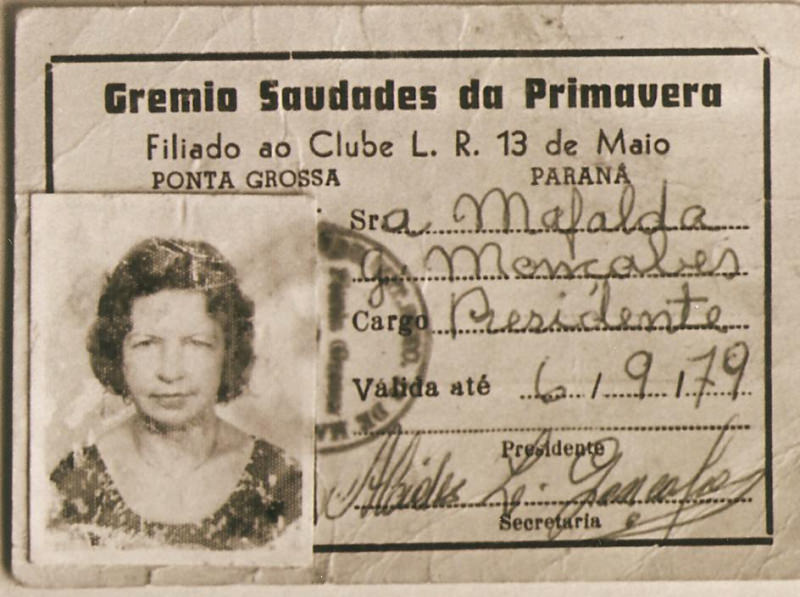 Gremio Saudades da Primavera
Filiado ao Clube L. R. 13 de Maio
PONTA GROSSA PARANÁ
Sra Mafalda
G. Moncalves
Cargo Presidente
Válida até 6/9/79
Presidente
Secretaria